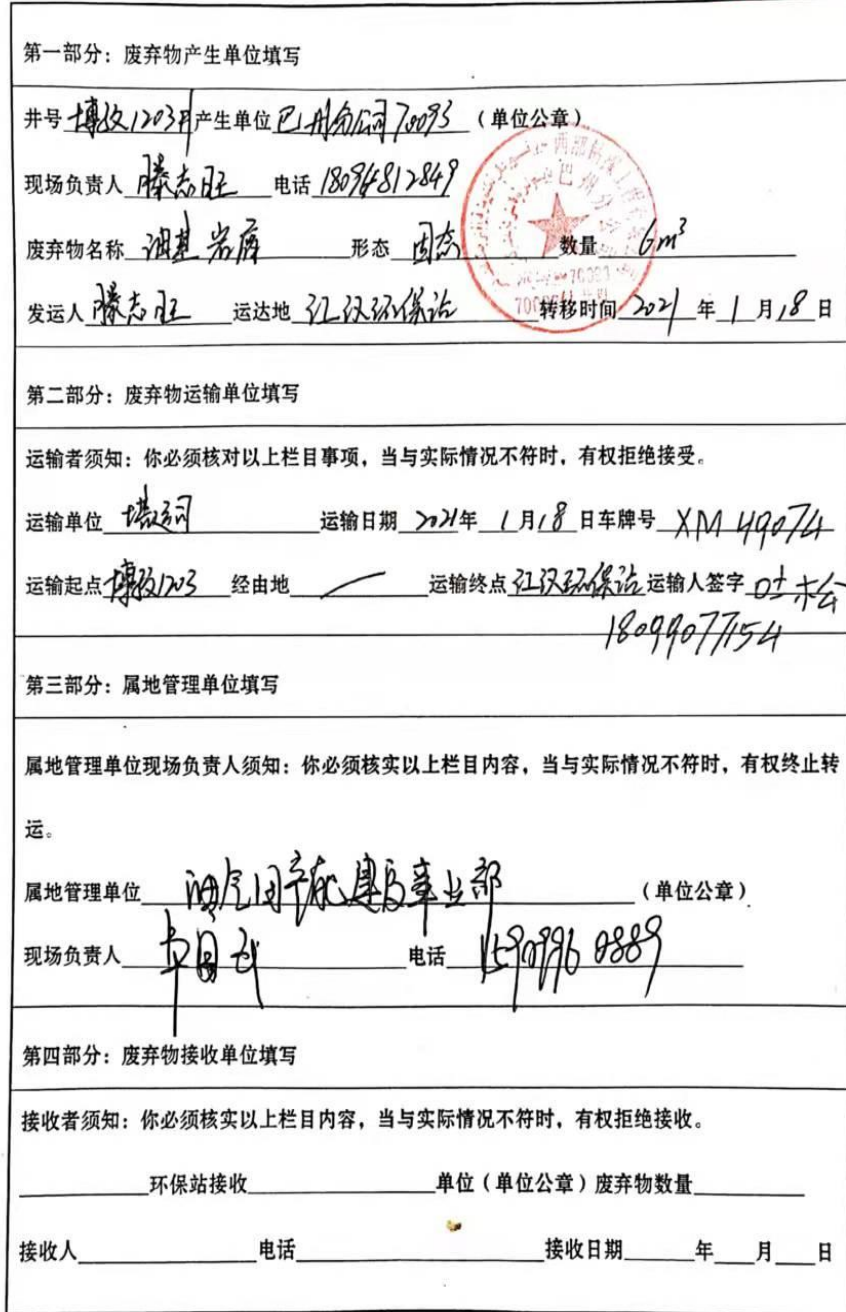 第一部分：废弃物产生单位填写
井号 博孜1203井 产生单位 巴州分公司70093 （单位公章）
现场负责人 滕志旺 电话 18094812849
废弃物名称 油基岩屑 形态 固态 数量 6m³
发运人 滕志旺 运达地 江汉环保站 转移时间 2021 年 1 月 18 日
第二部分：废弃物运输单位填写
运输者须知：你必须核对以上栏目事项，当与实际情况不符时，有权拒绝接受。
运输单位 塔运司 运输日期 2021年 1月18日车牌号 XM49074
运输起点 博孜1203 经由地 运输终点 江汉环保站 运输人签字
18099077154
第三部分：属地管理单位填写
属地管理单位现场负责人须知：你必须核实以上栏目内容，当与实际情况不符时，有权终止转
运。
属地管理单位 油气田产能建设事业部 （单位公章）
现场负责人 电话 15909960889
第四部分：废弃物接收单位填写
接收者须知：你必须核实以上栏目内容，当与实际情况不符时，有权拒绝接收。
环保站接收 单位（单位公章）废弃物数量
接收人 电话 接收日期 年 月 日